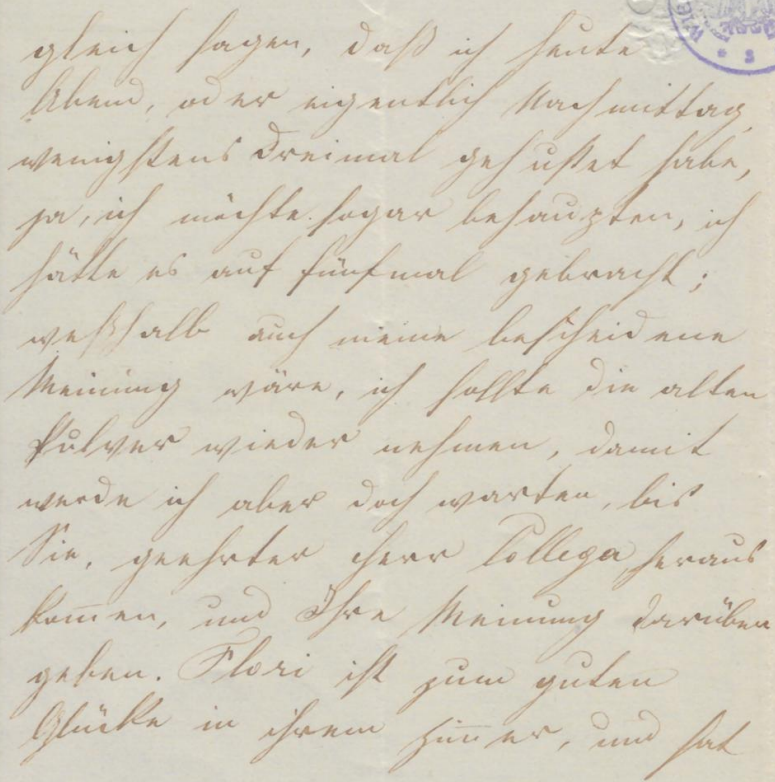 gleich sagen, daß ich heute
Abend, oder eigentlich Nachmittag
wenigstens dreimal gehustet habe,
ja, ich möchte sogar behaupten, ich
hätte es auf fünfmal gebracht;
weßhalb auch meine bescheidene
Meinung wäre, ich sollte die alten
Pulver wieder nehmen, damit
werde ich aber doch warten, bis
Sie, geehrter Herr Collega, heraus
kom̅en, und Ihre Meinung darüber
geben. Flori ist zum guten
Glücke in ihrem Zim̅er, und hat